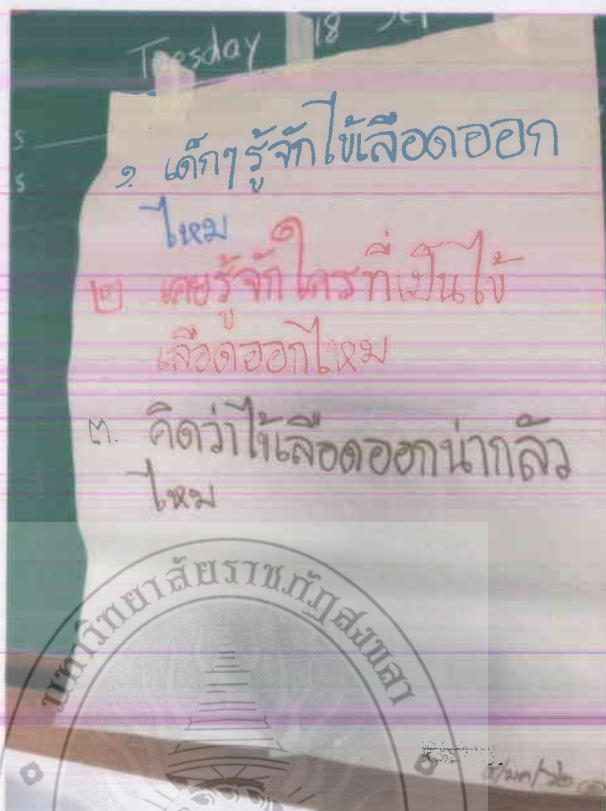 Tuesday 18 Sep
S
S
๑. เด็กๆ รู้จักไข้เลือดออก
ไหม
๒ เคยรู้จักใครที่เป็นไข้
เลือดออกไหม
๓. คิดว่าไข้เลือดออกน่ากลัว
ไหม
มหาวิทยาลัยราชภัฏสงขลา